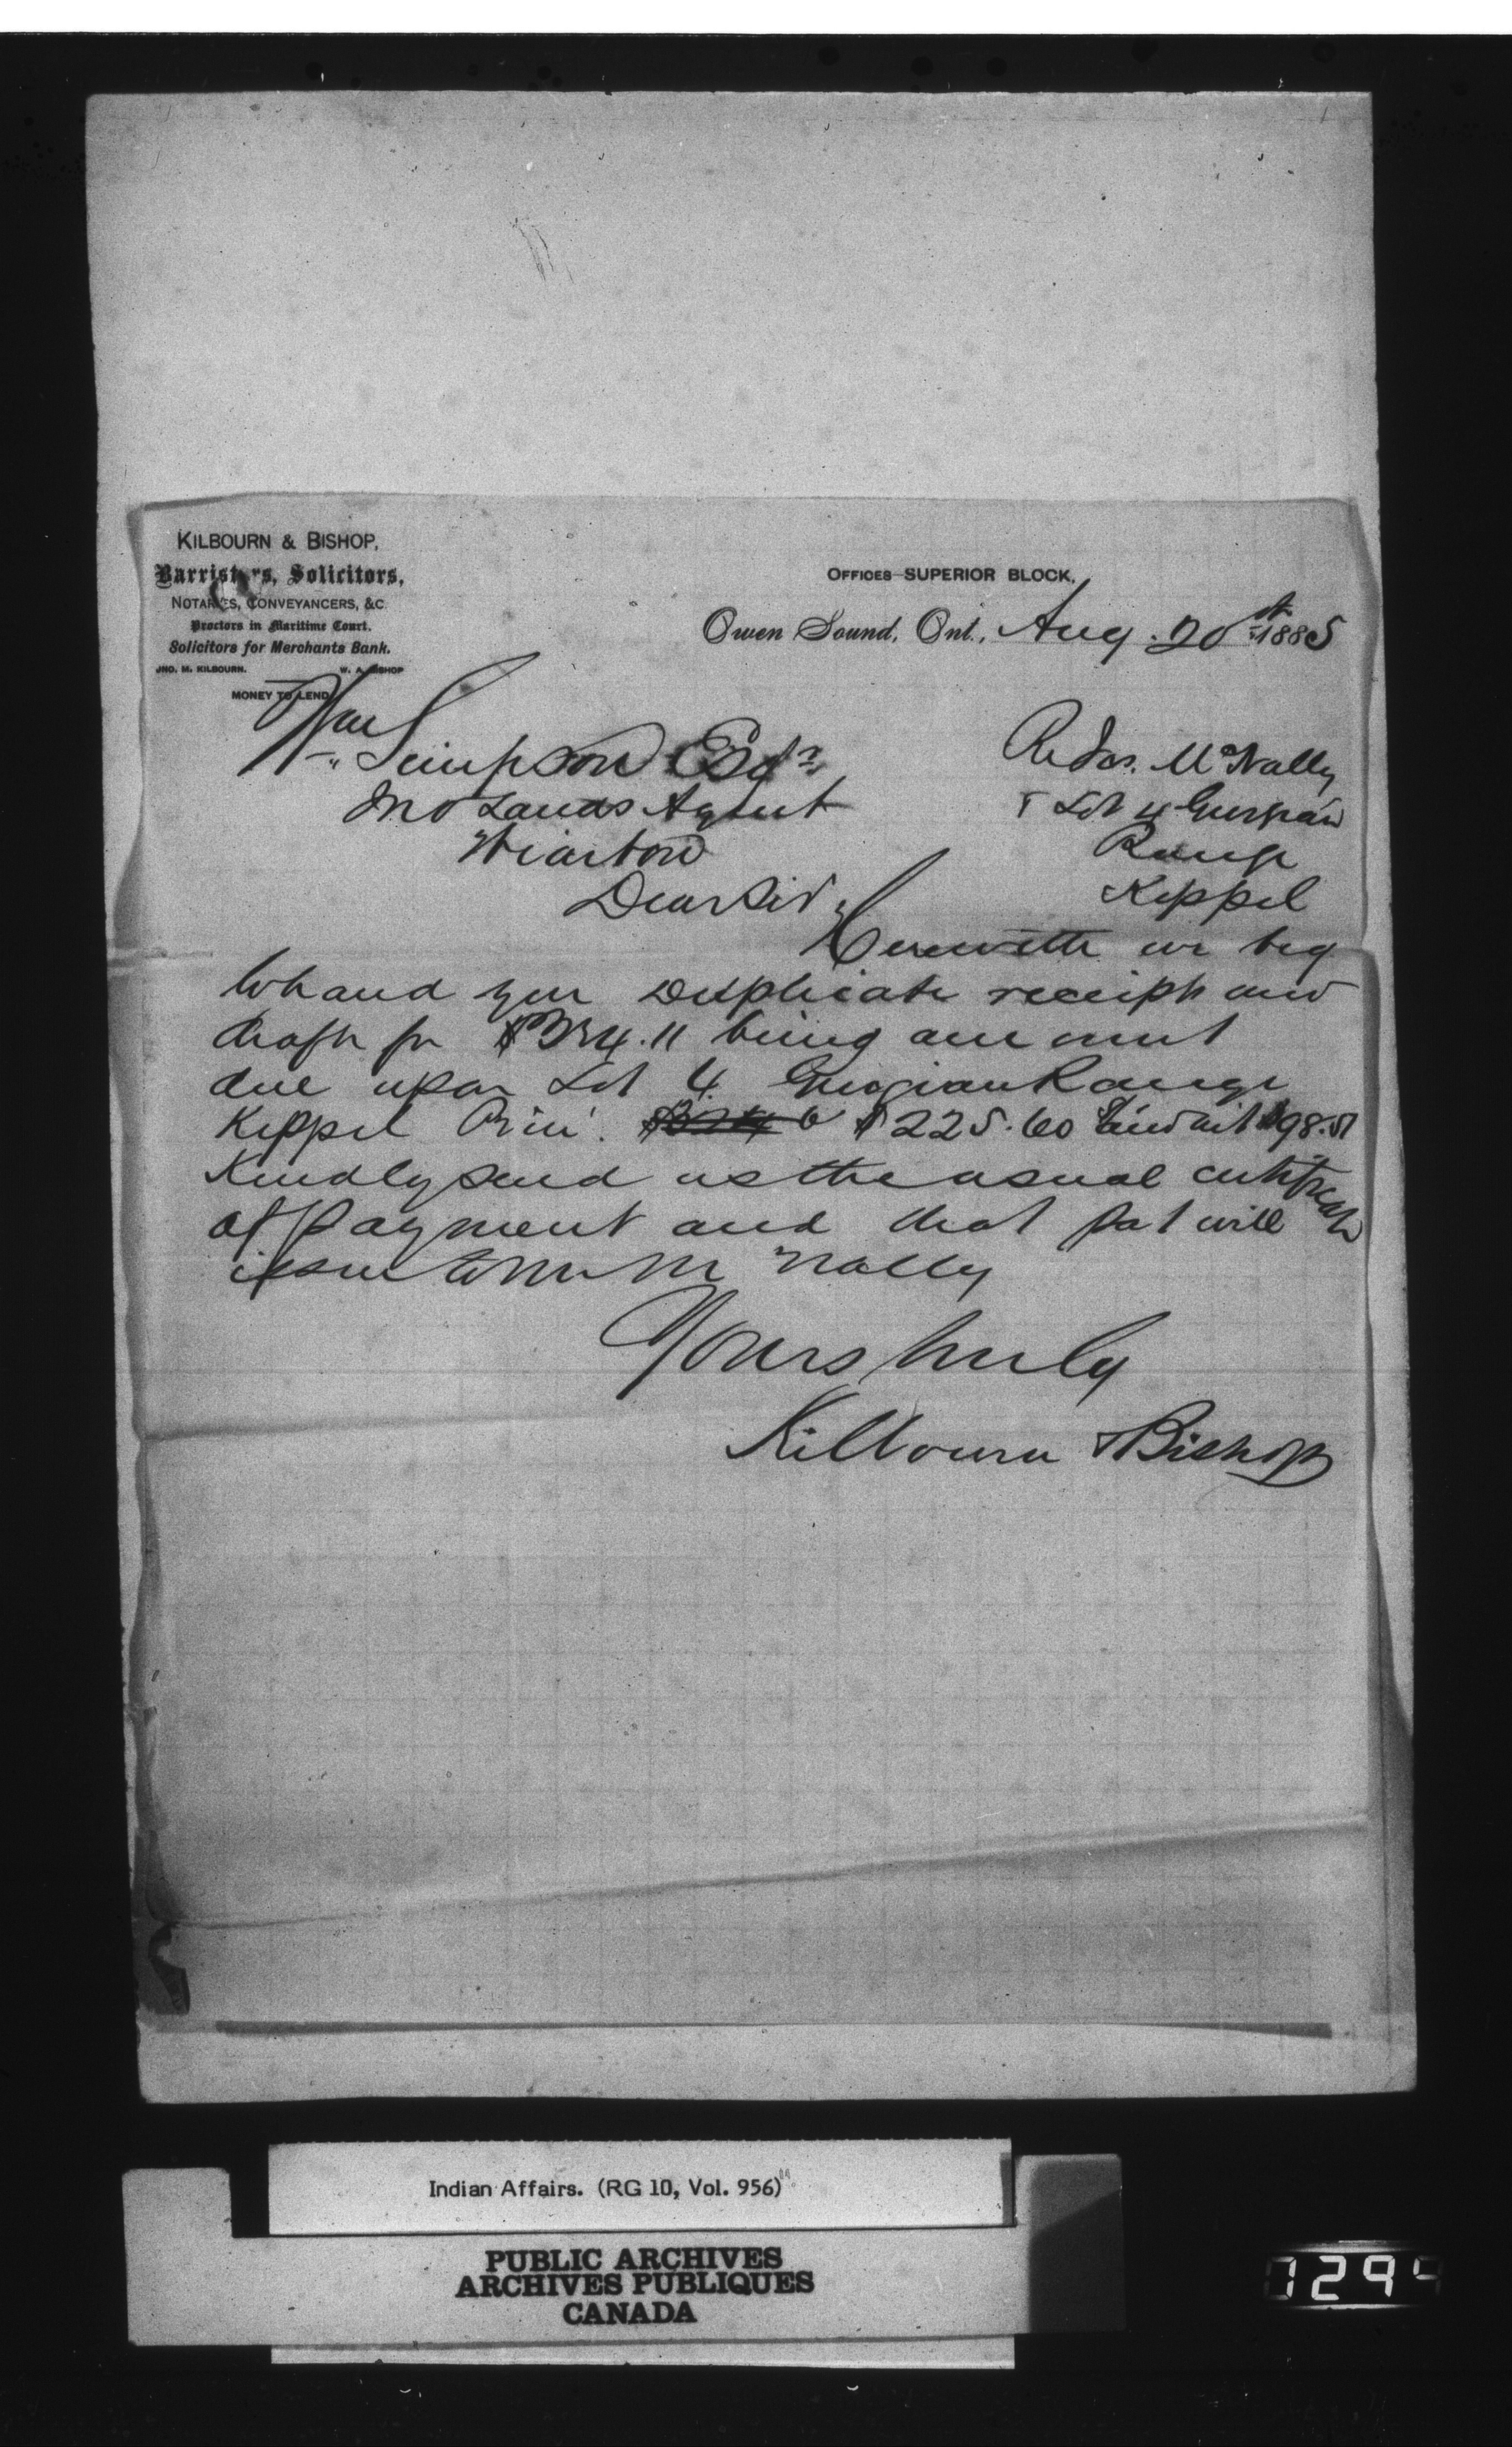 KILBOURN & BISHOP,
Barristers, Solicitors,
NOTARIES, CONVEYANCERS, &C.
Proctors in Maritime Court.
Solicitors for Merchants Bank.
JNO. M. KILBOURN. W. A. BISHOP
MONEY TO LEND
OFFICES SUPERIOR BLOCK,
Owen Sound, Ont., Aug. 20st 1885
Wm Simpson Esqr
Ind Lands Agent
Wiarton
Re Jas. McNally
Lot 4 Georgian
Range
Keppel
Dear Sir,
Herewith we beg
to hand you Duplicate receipt and
draft for $324.11 being amount
due upon Lot 4 Georgian Range
Keppel Prin. $225.60 and int $98.51
Kindly send us the usual certificate
of payment and that pat will
issue to Mr McNally
Yours truly
Kilbourn & Bishop
Indian Affairs. (RG 10, Vol. 956)
PUBLIC ARCHIVES
ARCHIVES PUBLIQUES
CANADA
1294